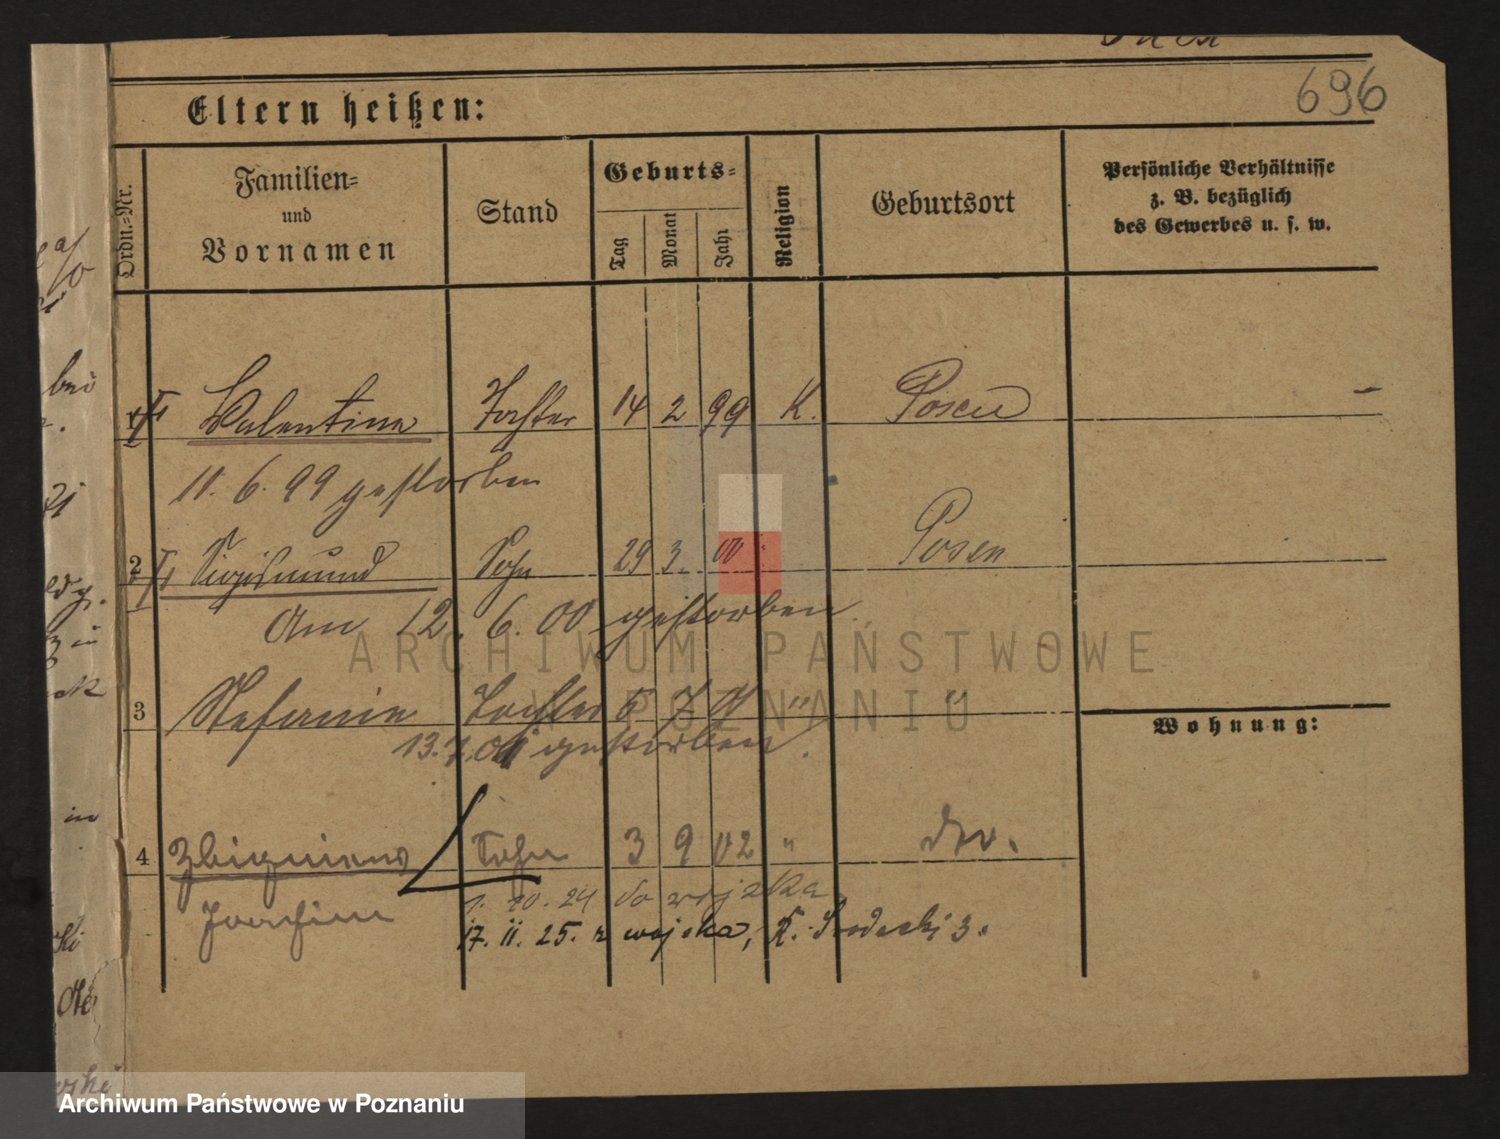 696
Eltern heißen:
Ordn.-Nr.
Familien-
und
Vornamen
Stand
Geburts-
Tag
Monat
Jahr
Religion
Geburtsort
Persönliche Verhältnisse
z. B. bezüglich
des Gewerbes u. s. w.
Valentine Tochter 14 2 99 K. Posen –
11. 6. 99 gestorben
2 Sigismund Sohn 29 3. 00 " Posen
Am 12. 6. 00 gestorben
3 Stefanie Tochter 5 7 01 " "
Wohnung:
13. 7. 01 gestorben.
4 Zbigniew Sohn 3 9 02 " do.
Joachim
1. 10. 24 do wojska
17. 11. 25. z wojska, K. Srodecki 3.
bei
in
ARCHIWUM PAŃSTWOWE
W POZNANIU
Archiwum Państwowe w Poznaniu